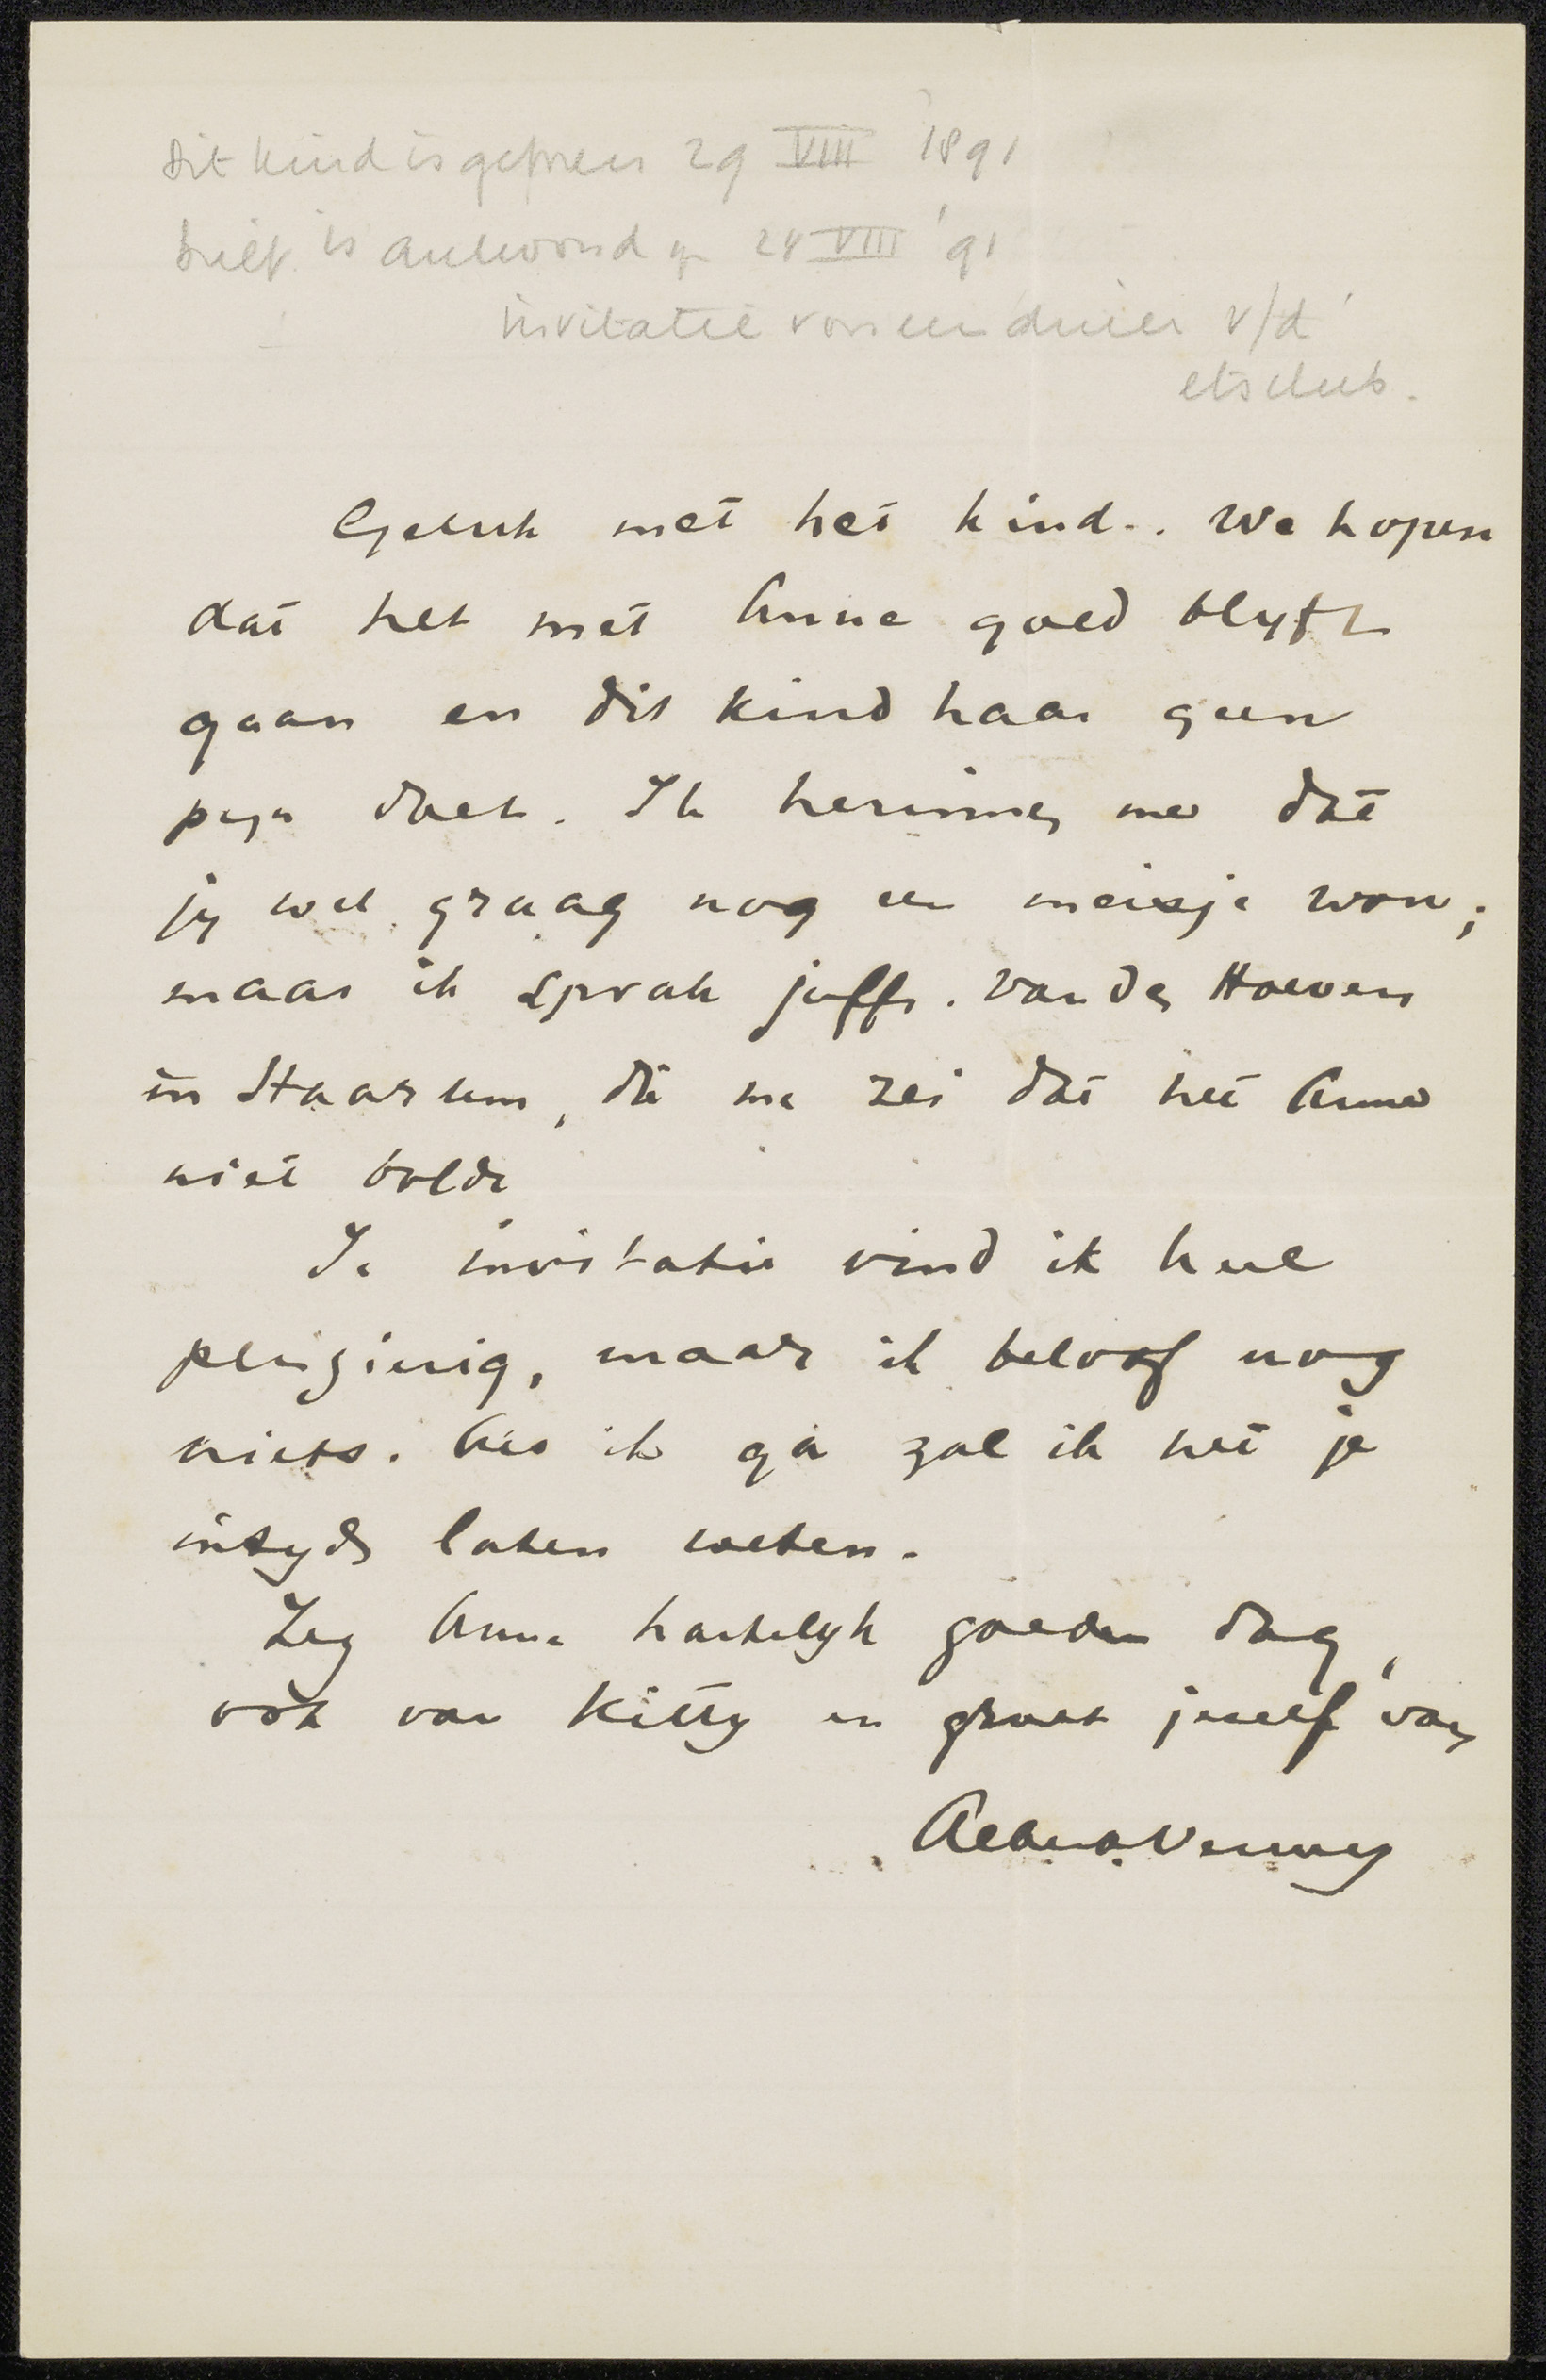 dit kind is geboren 29 VIII 1891
brief is antwoord op 28 VIII '91
invitatie voor een diner v/d
etsclub.
Geluk met het kind.. We hopen
dat het met Anna goed blyft
gaan en dit kind haar geen
pyn doet. Ik herinner me dat
jy wel graag nog een meisje wou;
maar ik sprak juffr. van der Hoeven
in Haarlem, die me zei dat het Anna
niet
Je invitatie vind ik heel
pleizierig, maar ik beloof nog
niets. Als ik ga zal ik het je
intyds laten weten.
Zeg Anna hartelyk goeden dag,
ook van Kitty en groet jezelf van
Albert Verwey